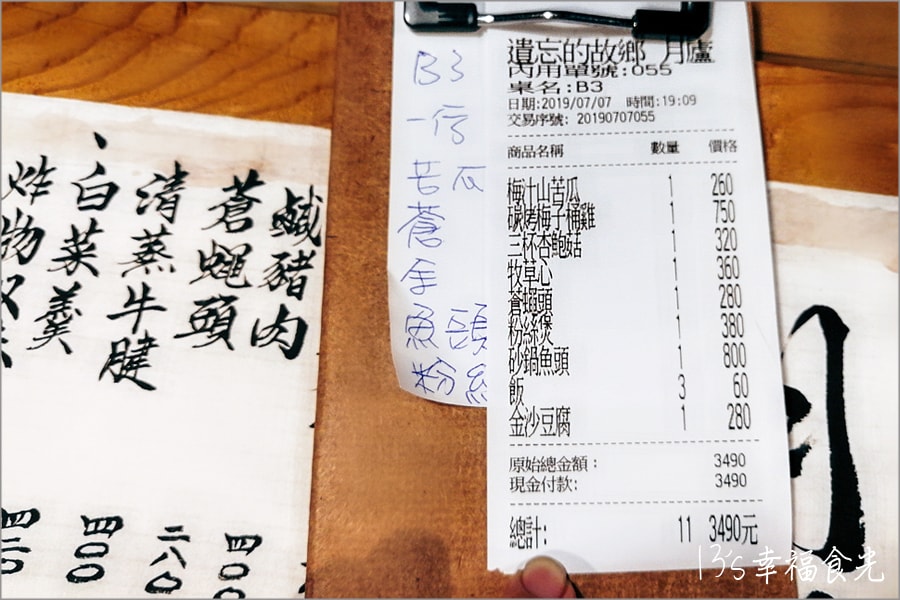 鹹豬肉
蒼蠅頭
清蒸牛腱
白菜羹
炸物
四〇〇
二八〇
四〇〇
B3
一行
苦瓜
蒼
魚頭
粉絲
遺忘的故鄉 月廬
內用單號:055
桌名:B3
日期:2019/07/07 時間:19:09
交易序號: 20190707055
商品名稱 數量 價格
梅汁山苦瓜 1 260
碳烤梅子桶雞 1 750
三杯杏鮑菇 1 320
牧草心 1 360
蒼蠅頭 1 280
粉絲煲 1 380
砂鍋魚頭 1 800
飯 3 60
金沙豆腐 1 280
原始總金額: 3490
現金付款: 3490
總計: 11 3490元
13's幸福食光